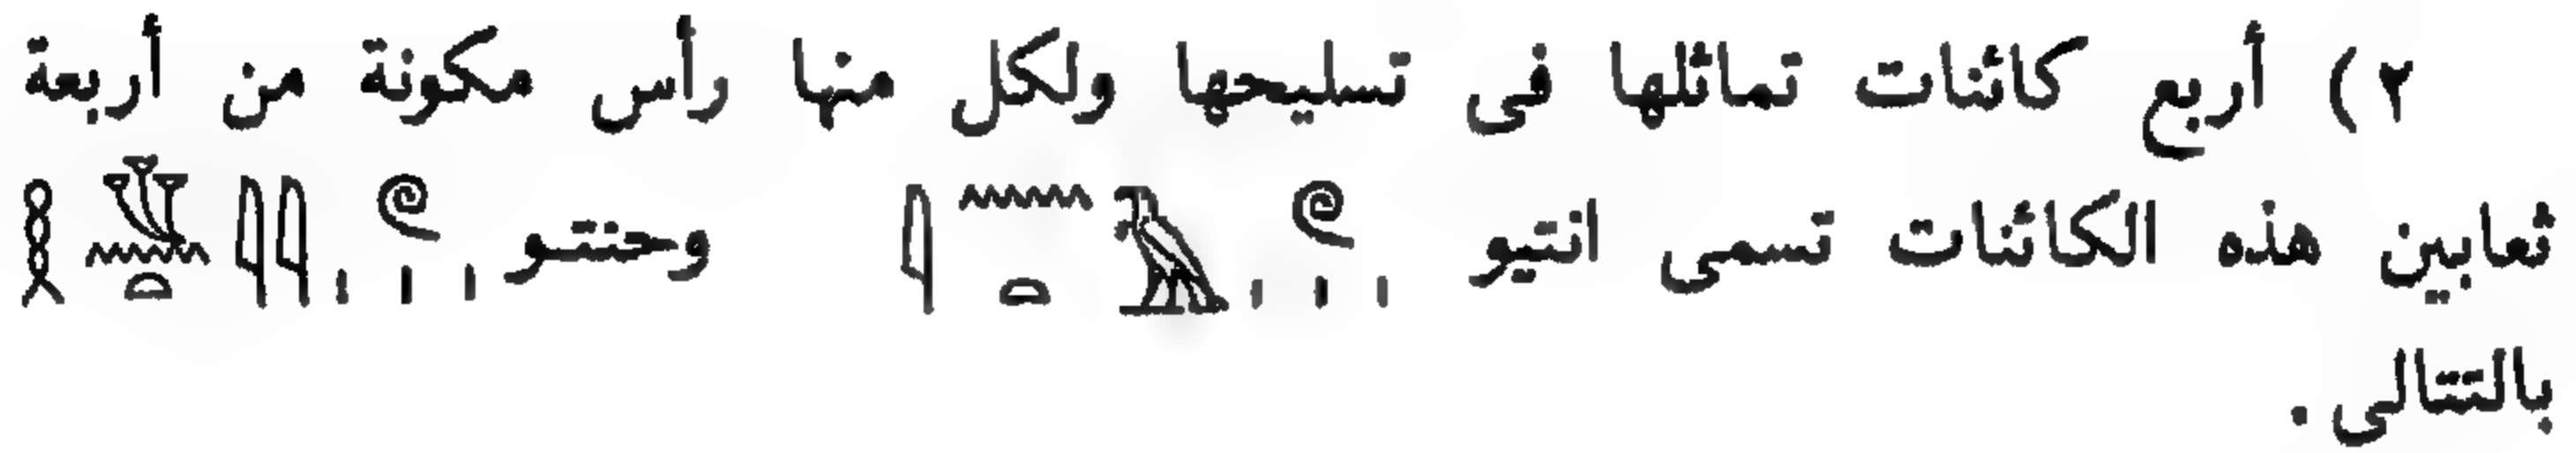 ٢) أربع كائنات تماثلها فى تسليحها ولكل منها رأس مكونة من أربعة
ثعابين هذه الكائنات تسمى انتيو 𓇋𓈖𓏏𓅂𓏲𓏥 وحنتو 𓎛𓈖𓏏𓇌𓏲𓏥
بالتتالى .